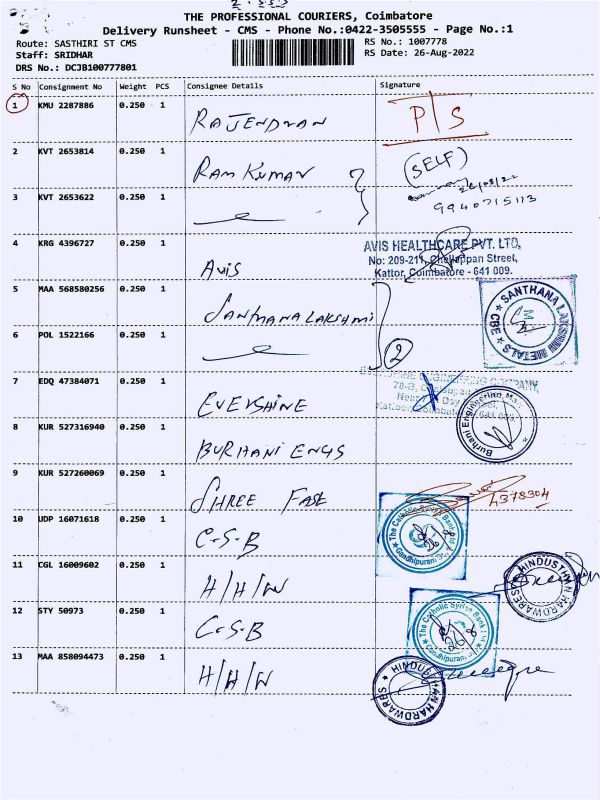 THE PROFESSIONAL COURIERS, Coimbatore
Delivery Runsheet - CMS - Phone No.:0422-3505555 - Page No.:1
Route: SASTHIRI ST CMS
RS No.: 1007778
Staff: SRIDHAR
RS Date: 26-Aug-2022
DRS No.: DCJB100777801
S No Consignment No Weight PCS Consignee Details Signature
1 KMU 2287886 0.250 1 RAJENDRAN P/S
2 KVT 2653814 0.250 1 RAM KUMAR (SELF)
9940715113
3 KVT 2653622 0.250 1
4 KRG 4396727 0.250 1 AVIS
AVIS HEALTHCARE PVT. LTD,
No: 209-211, Chellappan Street,
Kattor, Coimbatore - 641 009.
5 MAA 568580256 0.250 1 SANTHANALAKSHMI
SANTHANA LAKSHMI METALS
CBE
6 POL 1522166 0.250 1 2
7 EDQ 47384071 0.250 1 EVERSHINE
ENGINEERING COMPANY,
8 KUR 527316940 0.250 1 BURHANI ENGS
Burhani Engineering
9 KUR 527260069 0.250 1 SHREE FASE
4378304
10 UDP 16071618 0.250 1 C-S-B
The Catholic Syrian Bank Ltd
Gandhipuram
11 CGL 16009602 0.250 1 H/H/W
HINDUSTHAN HARDWARES
12 STY 50973 0.250 1 C-S-B
The Catholic Syrian Bank Ltd
Gandhipuram
13 MAA 858094473 0.250 1 H/H/W
HINDUSTHAN HARDWARES